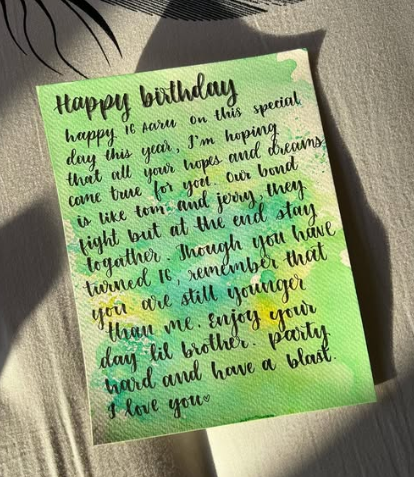 Happy birthday
happy 16 aaru on this special
day this year, I'm hoping
that all your hopes and dreams
come true for you. Our bond
is like tom and jerry, they
fight but at the end stay
togather. Though you have
turned 16, remember that
you are still younger
than me. Enjoy your
day lil brother. Party
hard and have a blast.
I love you♡